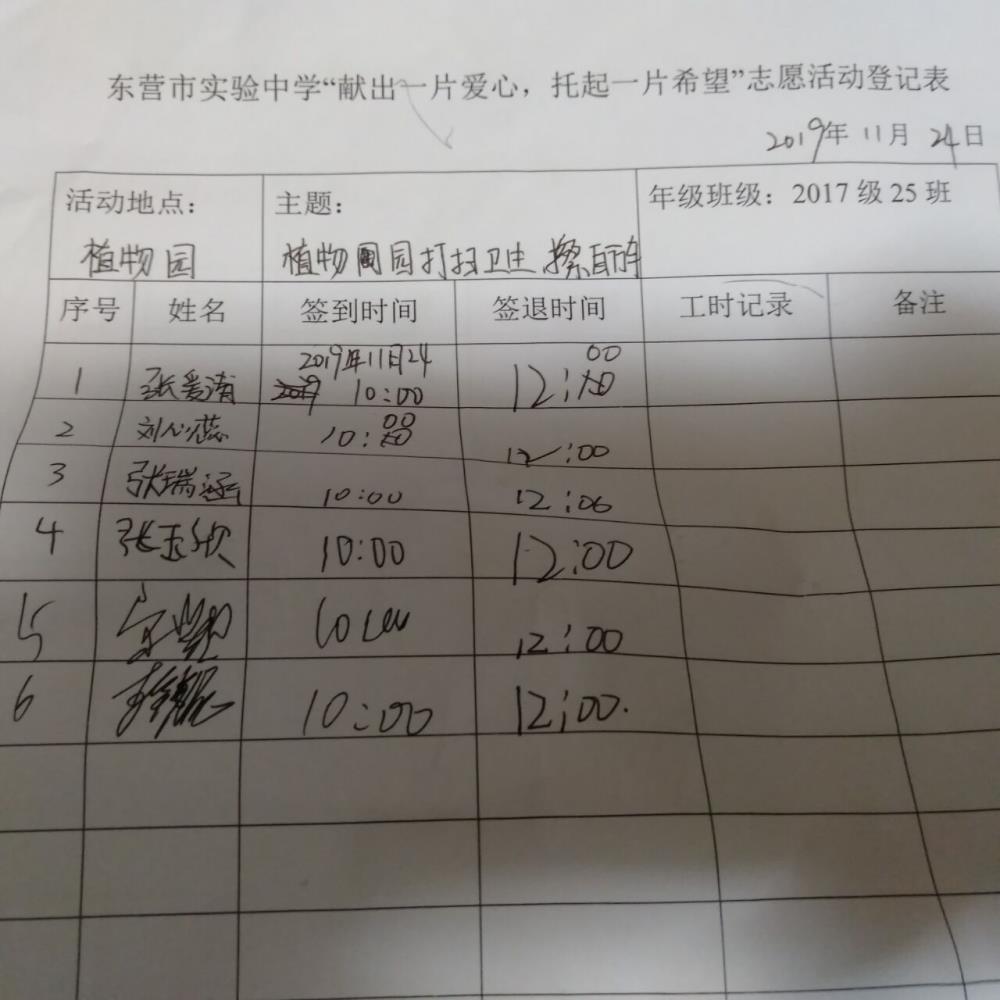 东营市实验中学“献出一片爱心，托起一片希望”志愿活动登记表
2019年 11月 24日
活动地点： 主题： 年级班级：2017 级 25 班
植物园 植物园打扫卫生 擦
序号 姓名 签到时间 签退时间 工时记录 备注
2019年11月24 00
1 张爱清 10:00 12:
2 刘心蕊 10:00 12:00
3 张瑞涵 10:00 12:00
4 张玉欣 10:00 12:00
5 10:00 12:00
6 10:00 12:00.